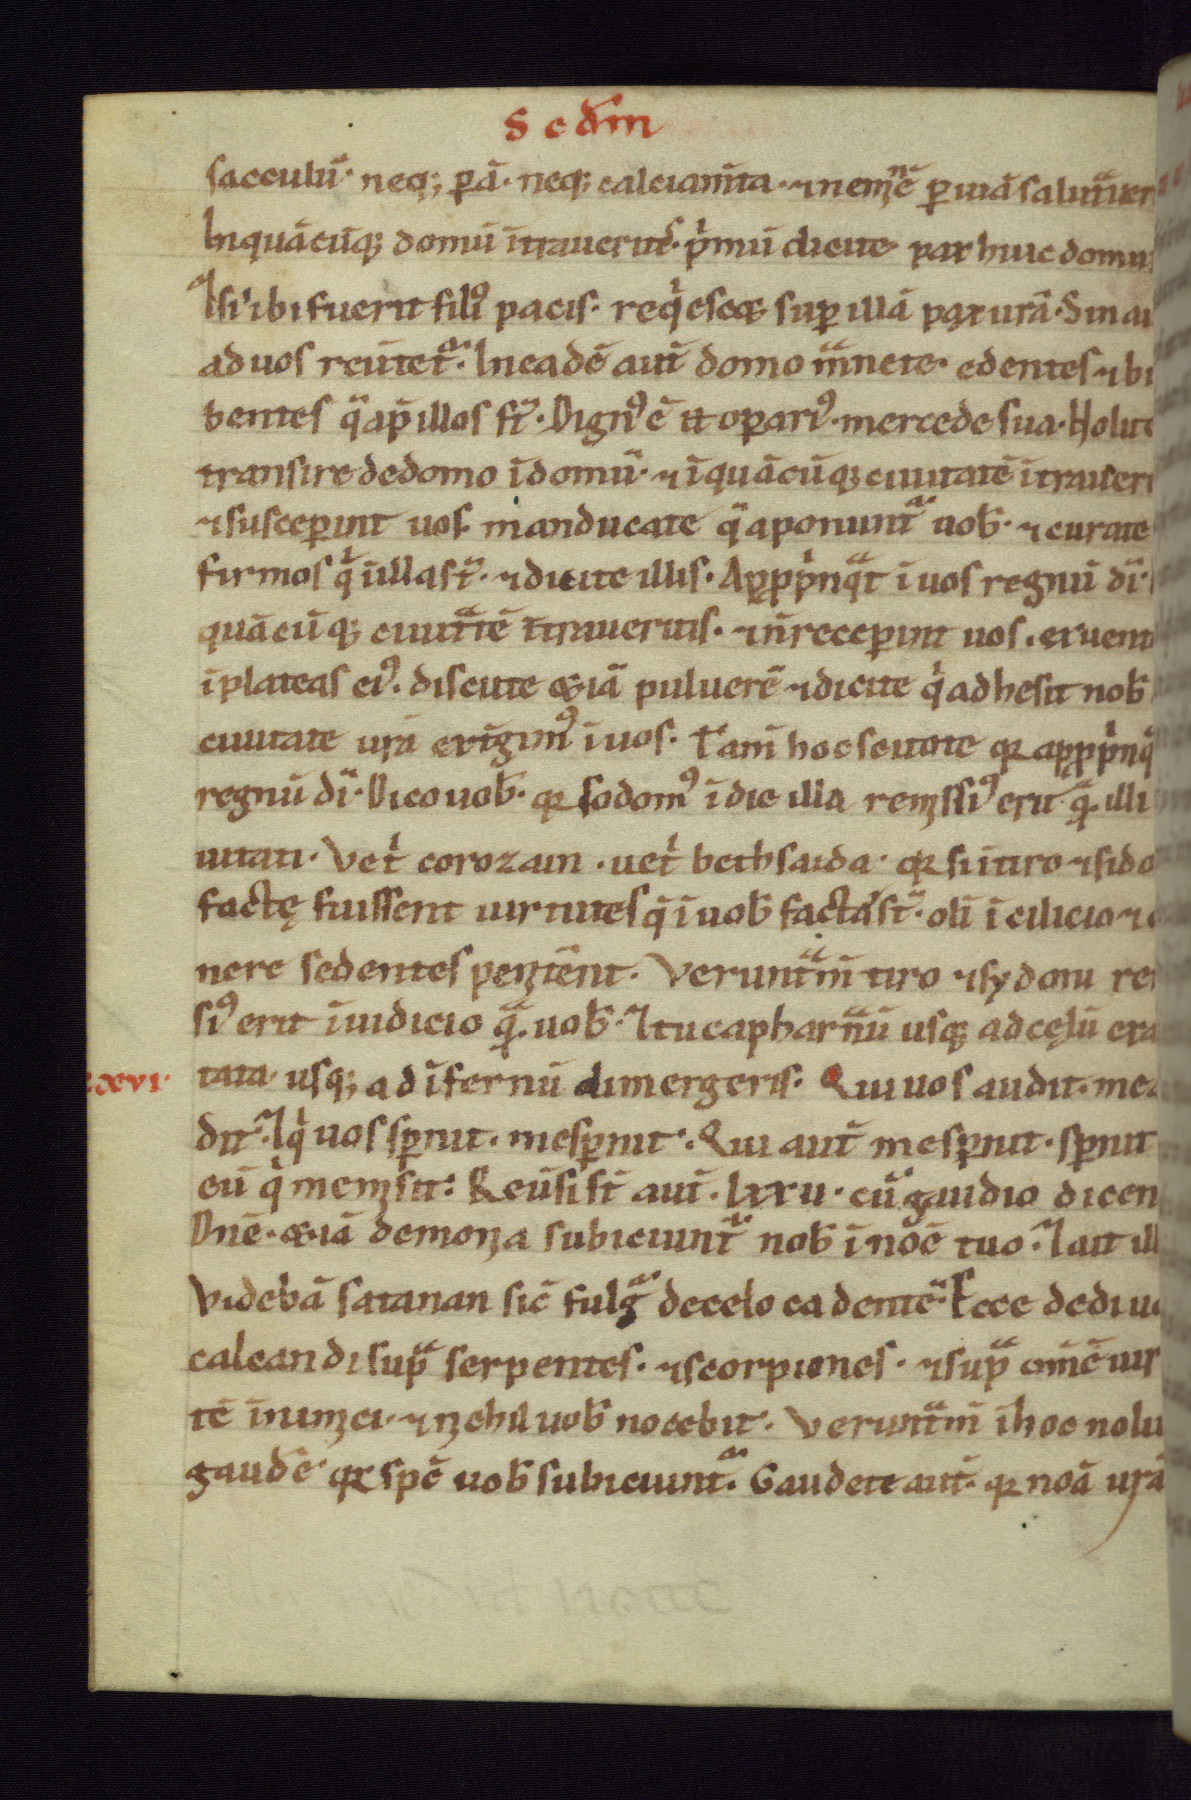 Scdm
sacculū· neq; ꝑā· neq; calciam̄ta· ⁊ neminē ꝑ uiā salut
In quācūq; domū ītraueritis· pͥmū dicite· pax huic domui
⁊ si ibi fuerit filiꝰ pacis· reqͥescet suꝑ illā pax urā· Sin
ad uos reūtet̄· In eadē aut̄ domo manete· edentes ⁊ bi
bentes q̄ ap̄ illos st̄· Dignꝰ ē . oꝑariꝰ· mercede sua· Nolite
transire de domo ī domū· ⁊ ī quācūq; ciuitatē ītrauer
⁊ susceꝑint uos· manducate q̄ aponunt̄ uob̄· ⁊ curate
firmos qͥ ī illa st̄· ⁊ dicite illis· App̄pīnqͣt ī uos regnū dī·
quācūq; ciuitatē ītraueritis· ⁊ n̄ receꝑint uos· exeunt
ī plateas eiꝰ· dicite et iā puluerē ⁊ dicite qͥ adhesit nob̄
ciuitate urā extīgimꝰ ī uos· Tam̄ hoc scitote qꝛ app̄pīnq
regnū dī· Dico uob̄· qꝛ sodomꝰ ī die illa remissiꝰ erit qͣ illi
uitati· Vet̄ corozain· uet̄ bethsaida· qꝛ si ī tiro ⁊ sido
factę fuissent uirtutes q̄ ī uob̄ facta st̄· oli ī cilicio ⁊ c
nere sedentes penitēnt· Verunt̄m tiro ⁊ sydoni re
siꝰ erit ī iudicio qͣ uob̄· ⁊ tu capharnaū usq; ad cęlū exa
xvi·
tata· usq; ad īfernū dimergeris· Qui uos audit· me
dit· ⁊ qͥ uos sꝑnit· me sꝑnit· Qui aut̄ me sꝑnit· sꝑnit
eū qͥ me misit· Reūsi st̄ aut̄· lxxii· cū gaudio dicen
Dn̄e· et iā demonia subiciunt̄ nob̄ ī noē tuo· ⁊ ait ill
Videbā satanan sic̄ fulgͣ de celo cadentē· Ecce dedi
calcandi supͣ serpentes· ⁊ scorpiones· ⁊ supͣ om̄ē uir
tē inimici· ⁊ nichil uob̄ nocebit· Verunt̄m ī hoc noli
gaudē· qꝛ spē uob̄ subiciunt̄· Gaudete aut̄· qꝛ noā urā